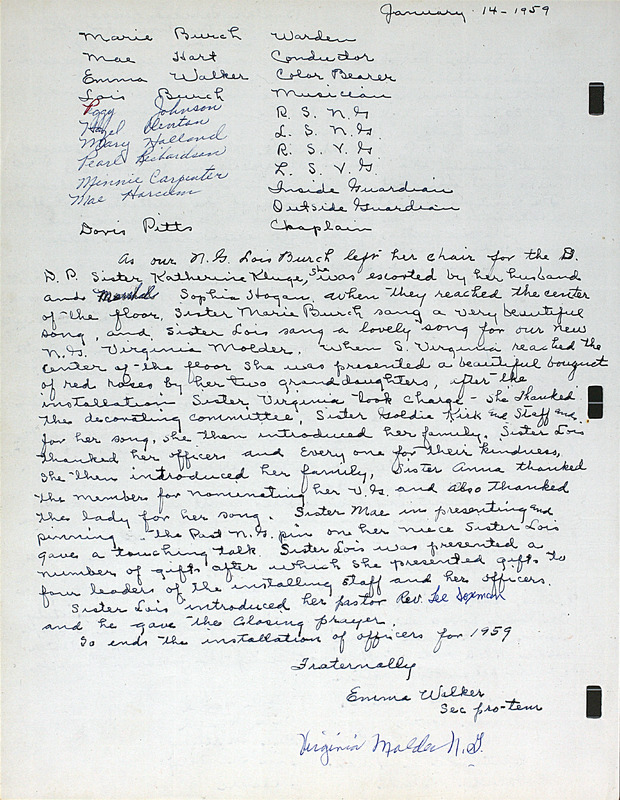 January 14-1959
Marie Burch Warden
Mae Hart Conductor
Emma Walker Color Bearer
Lois Burch Musician
Peggy Johnson R. S. N. G.
Hazel Clinton L. S. N. G.
Mary Holland R. S. V. G.
Pearl Richardson L. S. V. G.
Minnie Carpenter Inside Guardian
Mae Harcum Outside Guardian
Doris Pitts Chaplain
As our N. G. Lois Burch left her chair for the D.
D. P. Sister Katherine Kluge, she was escorted by her husband
and Sophia Hogan, when they reached the center
of the floor, Sister Marie Burch sang a very beautiful
song, and Sister Lois sang a lovely song for our new
N. G. Virginia Molder. When S. Virginia reached the
center of the floor she was presented a beautiful bouquet
of red roses by her two granddaughters, after the
installation Sister Virginia took Charge - She thanked
the decorating committee, Sister Goldie Kirk and Staff and
for her song, she then introduced her family. Sister Lois
thanked her officers and every one for their kindness,
She then introduced her family, Sister Anna thanked
the members for nominating her V. G. and also thanked
the lady for her song. Sister Mae in presenting and
pinning the Past N. G. pin on her niece Sister Lois
gave a touching talk. Sister Lois was presented a
number of gifts after which she presented gifts to
four leaders of the installing staff and her officers.
Sister Lois introduced her pastor Rev. Lee
and he gave the Closing prayer.
So ends the installation of officers for 1959
Fraternally
Emma Walker
Sec pro-tem
Virginia Molder N. G.